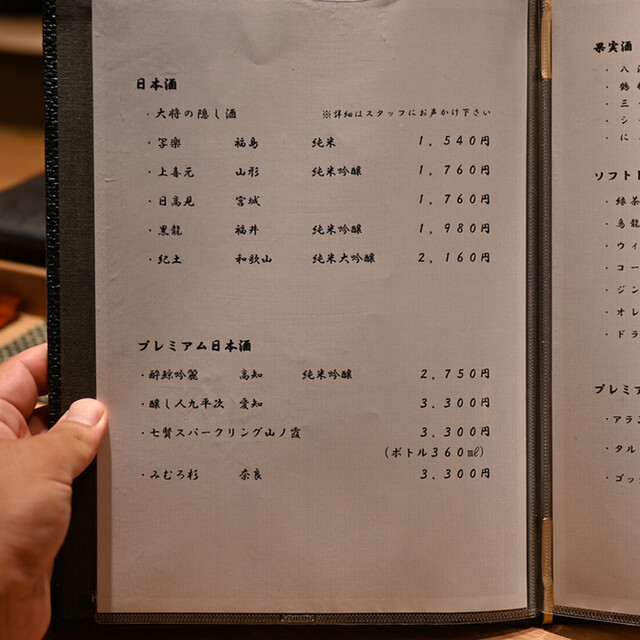 日本酒
・大将の隠し酒 ※詳細はスタッフにお声かけ下さい
・写樂 福島 純米 1,540円
・上喜元 山形 純米吟醸 1,760円
・日高見 宮城 1,760円
・黒龍 福井 純米吟醸 1,980円
・紀土 和歌山 純米大吟醸 2,160円
プレミアム日本酒
・酔鯨吟麗 高知 純米吟醸 2,750円
・醸し人九平次 愛知 3,300円
・七賢スパークリング山ノ霞 3,300円
(ボトル360㎖)
・みむろ杉 奈良 3,300円
果実酒
・八
・鶴
・三
・シ
・に
ソフト
・緑茶
・烏龍
・ウィ
・コー
・ジン
・オレ
・ドラ
プレミア
・アラ
・タル
・ゴッ